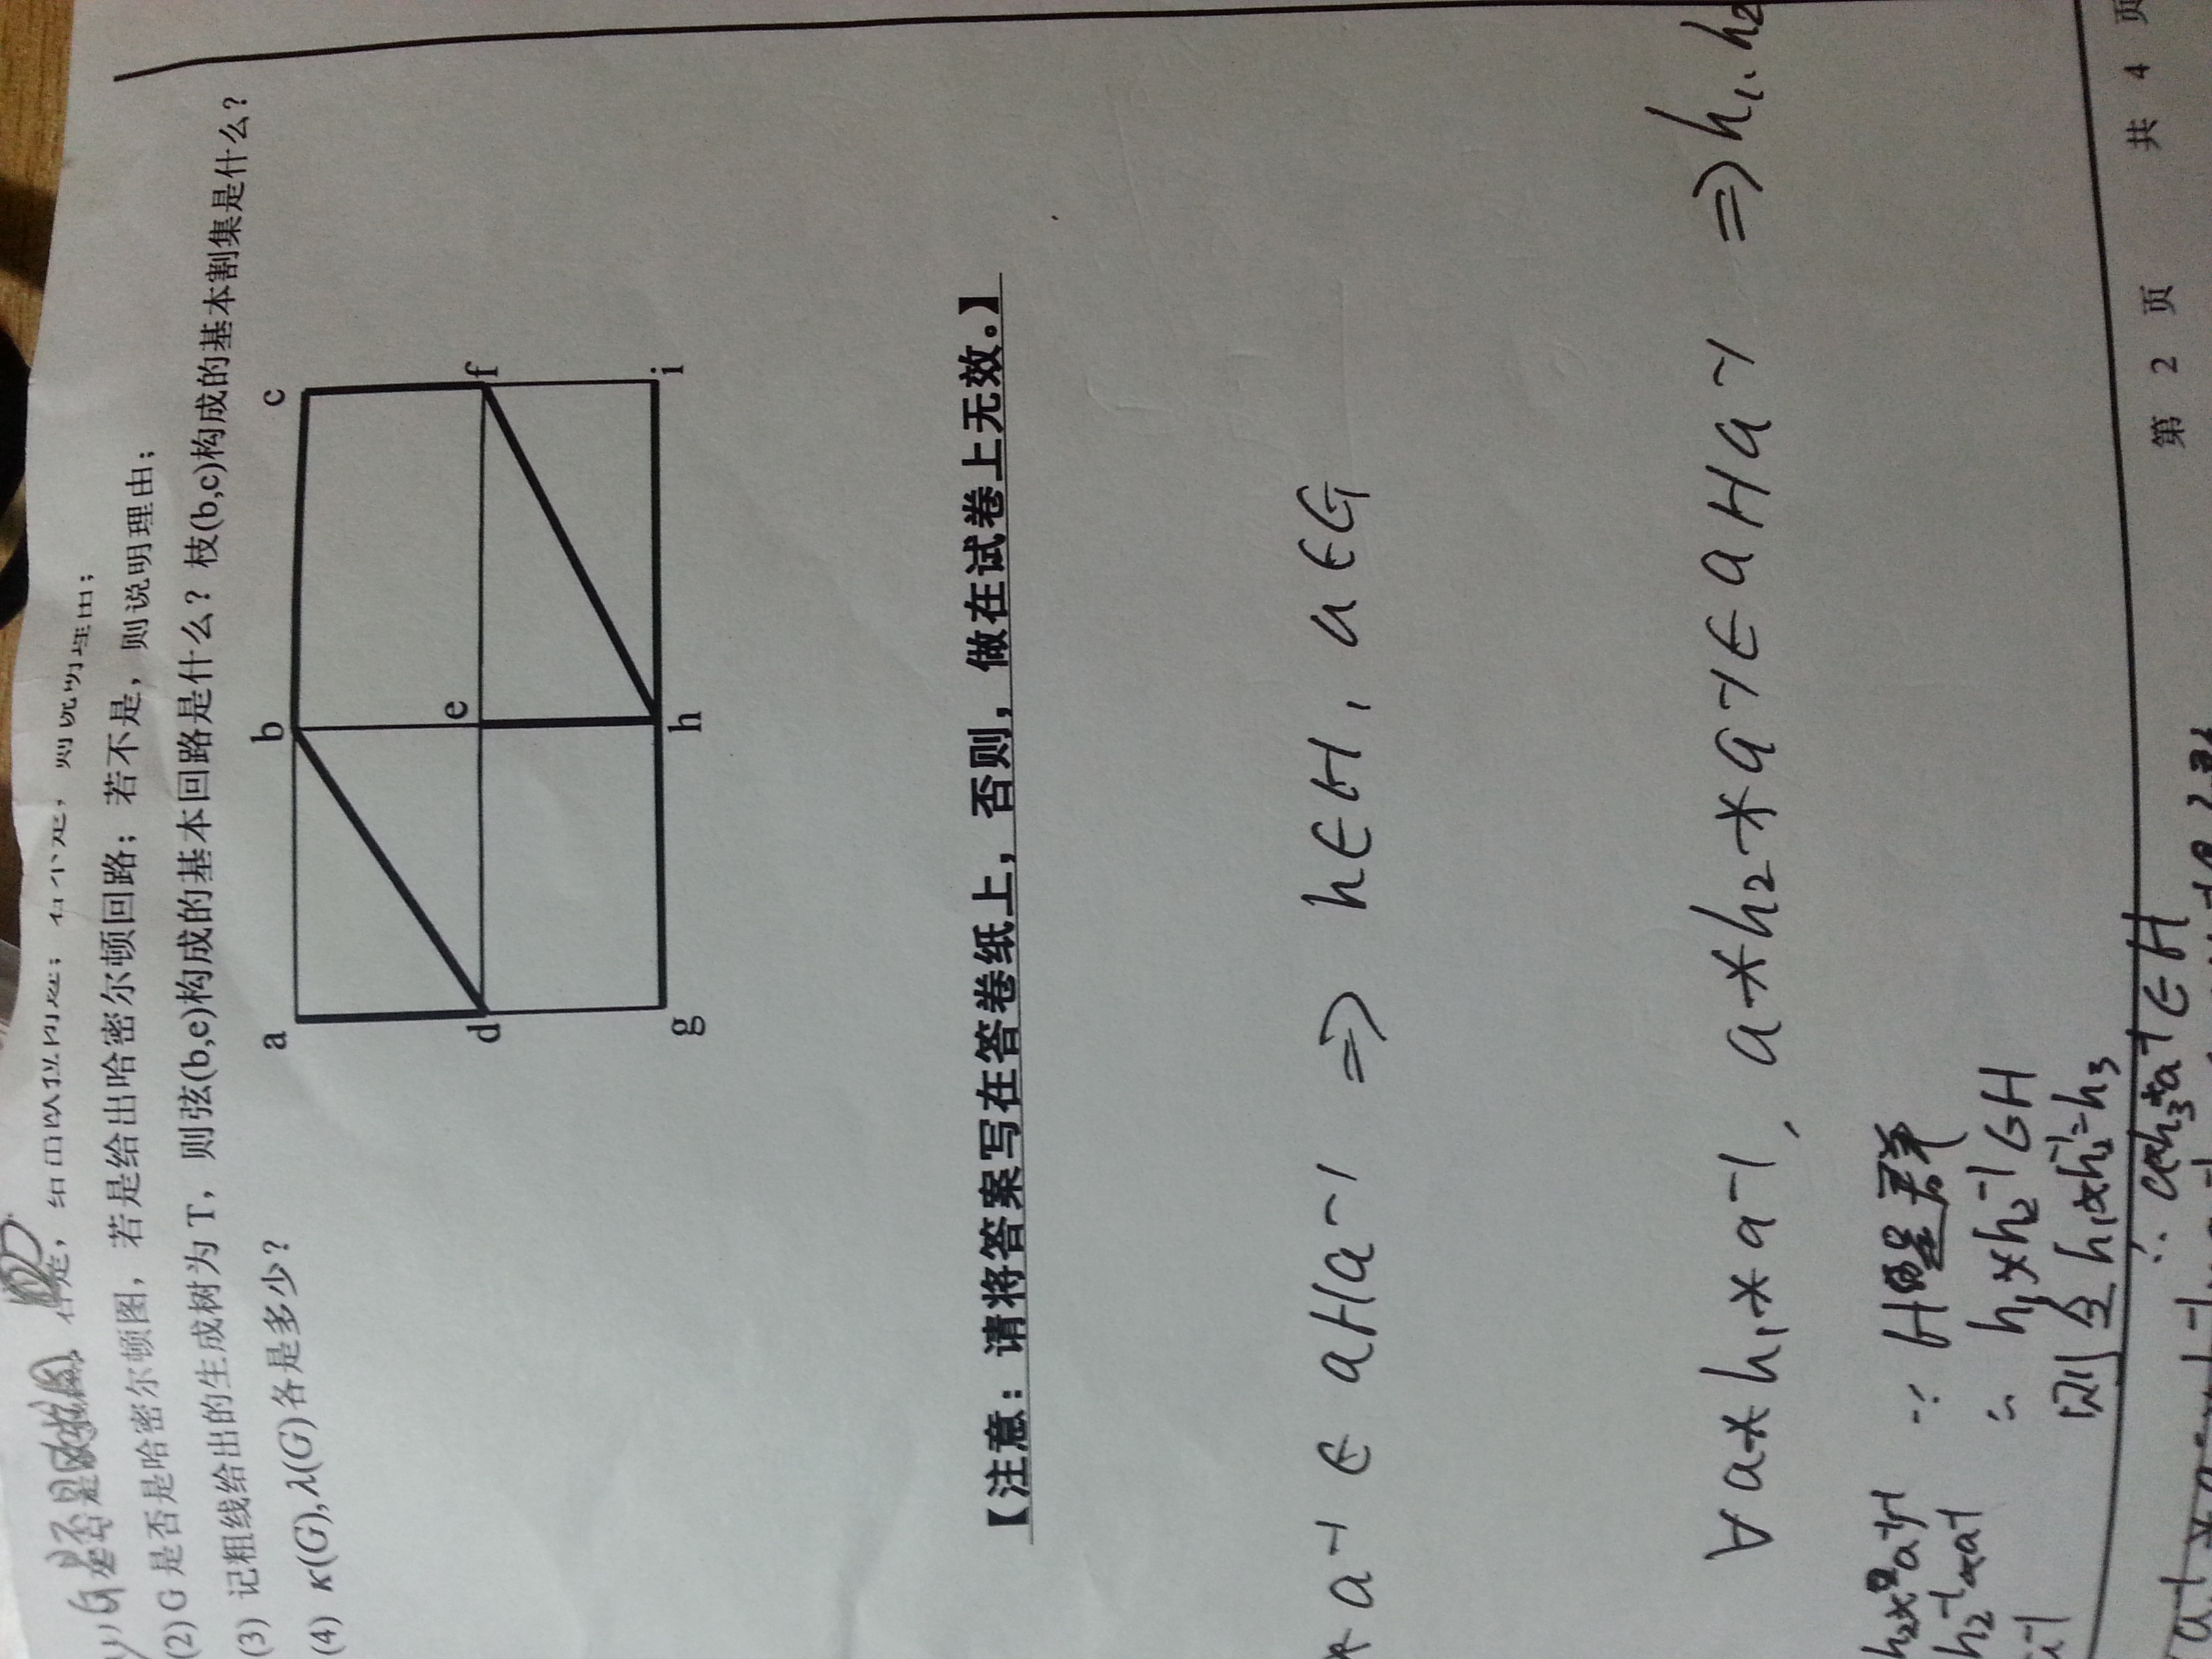 (1) G是否是欧拉图, 若是，给出欧拉闭迹；若不是，则说明理由；
(2) G 是否是哈密尔顿图，若是给出哈密尔顿回路；若不是，则说明理由；
(3) 记粗线给出的生成树为 T，则弦(b,e)构成的基本回路是什么？枝(b,c)构成的基本割集是什么？
(4) κ(G),λ(G)各是多少？
a b c
d e f
g h i
【注意：请将答案写在答卷纸上，否则，做在试卷上无效。】
* a⁻¹ ∈ aHa⁻¹ ⇒ h∈H, a∈G
∀ a*h₁*a⁻¹, a*h₂*a⁻¹∈aHa⁻¹ ⇒h₁,h₂
∵ H是群
h₂⁻¹*a⁻¹
∴ h₁*h₂⁻¹∈H
则令h₁*h₂⁻¹=h₃
∴ a*h₃*a⁻¹∈H
第 2 页 共 4 页